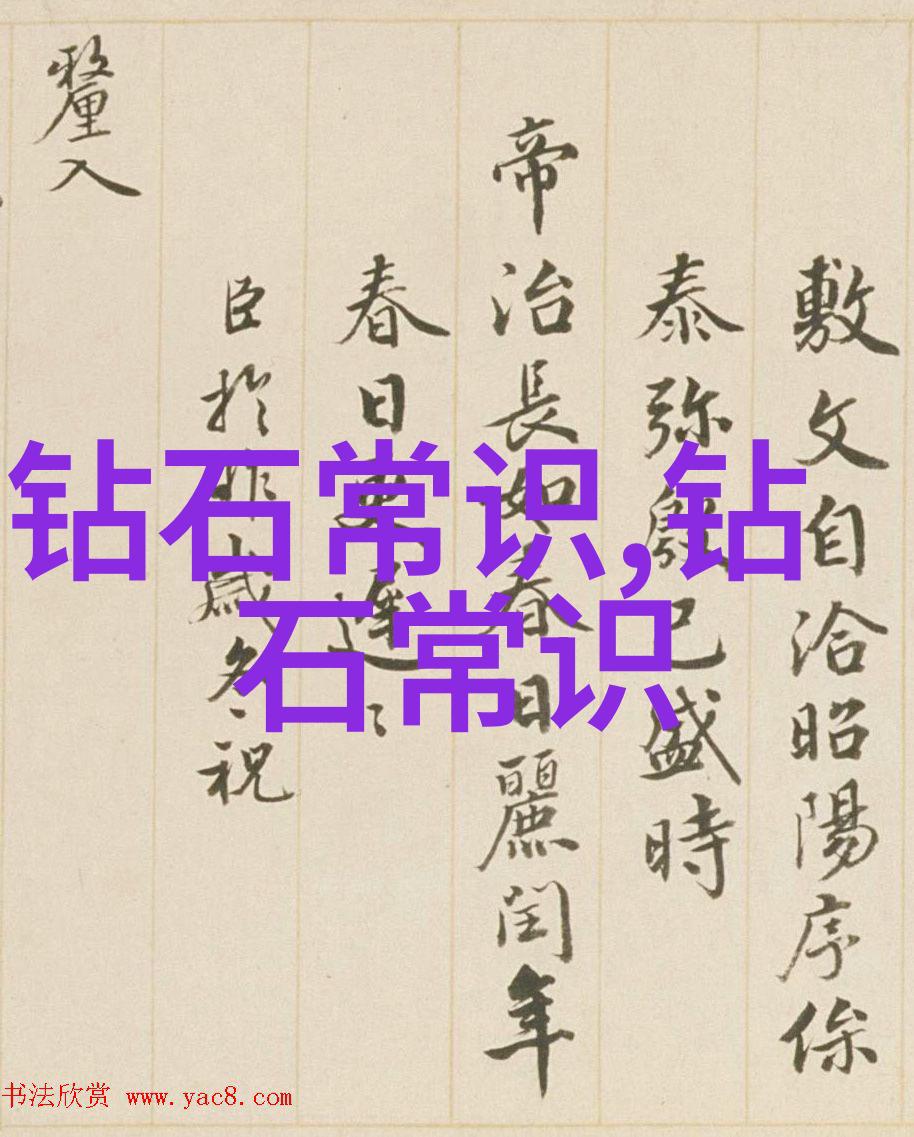 敷文自洽昭陽序
泰弥已盛時
帝治長如春日麗閏年
春日更遲〻
臣於歲冬〻祝
釐入
钻石常识,钻
石常识
书法欣赏 www.yac8.com